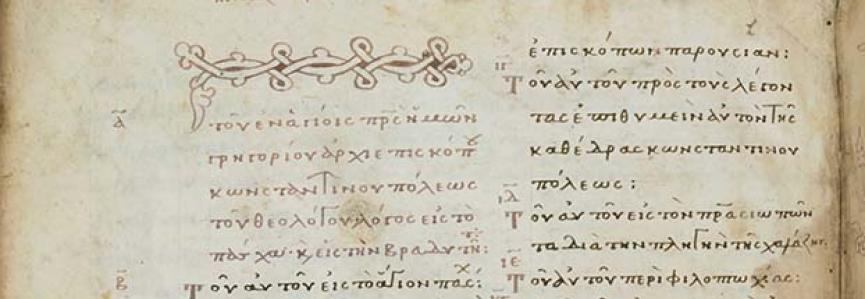 α
τοῦ ἐν ἁγίοις πρς ἡμῶν
γρηγορίου ἀρχιεπισκόπ
κωνσταντίνου πόλεως
τοῦ θεολόγου λόγος εἰς τὸ
πάσχα· κ εἰς τὴν βραδυτῆ:
β
Τοῦ αὐτοῦ εἰς τὸ ἅγιον πάσχ:
ἐπισκόπων παρουσίαν:
Τοῦ αὐτοῦ πρὸς τοὺς λέγοντας
ἐπιθυμεῖν αὐτὸν τῆς
καθέδρας κωνσταντίνου
πόλεως:
ιδ
Τοῦ αὐτοῦ εἰς τὸν πρα σιωπῶντα
διὰ τὴν πληγὴν τῆς χαλάζης
ιε
Τοῦ αὐτοῦ περὶ φιλοπτωχίας: